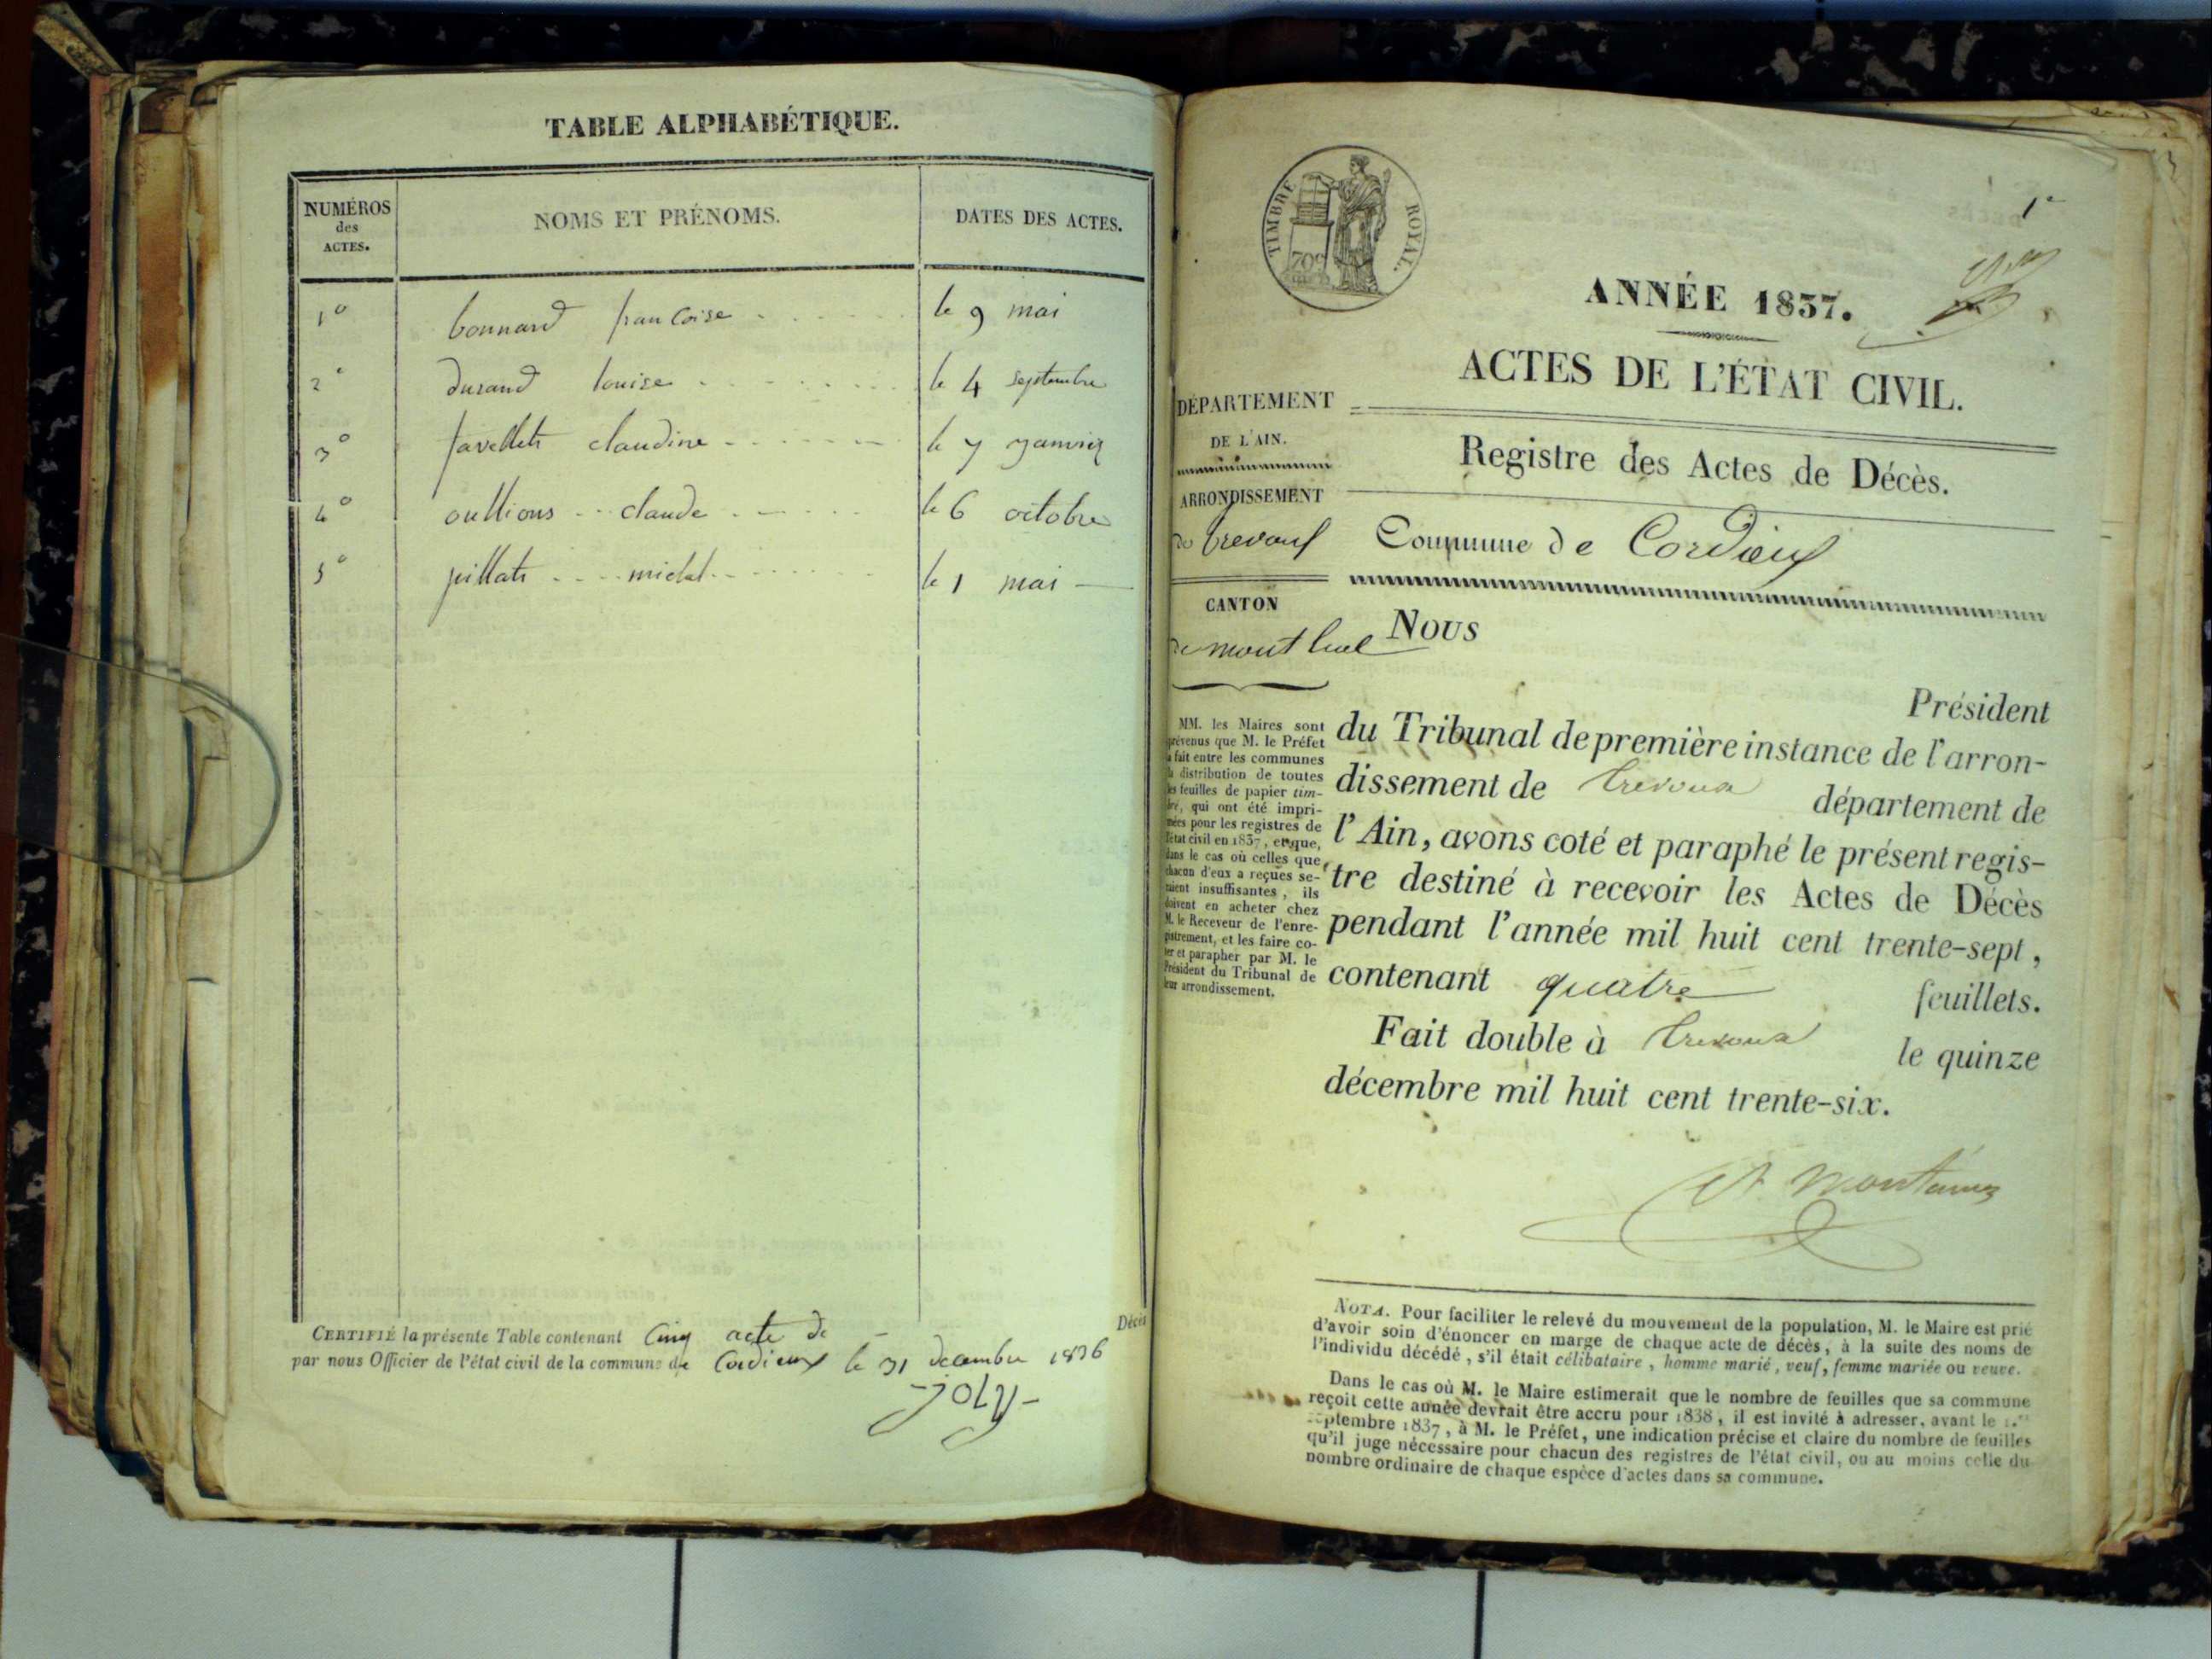 TABLE ALPHABÉTIQUE.
NUMÉROS
des
ACTES.
NOMS ET PRÉNOMS.
DATES DES ACTES.
1° bonnard francoise le 9 mai
2° durand louise le 4 septembre
3° favellets claudine le 7 janvier
4° oullions claude le 6 octobre
5° pillats michel le 1 mai
Décès
CERTIFIÉ la présente Table contenant Cinq acte de
par nous Officier de l'état civil de la commune de Cordieux le 31 decembre 1836
-joly-
TIMBRE ROYAL.
70c
1er
ANNÉE 1837.
ACTES DE L'ÉTAT CIVIL.
DÉPARTEMENT
DE L'AIN.
ARRONDISSEMENT
de trevoux
CANTON
de montluel
MM. les Maires sont
prévenus que M. le Préfet
a fait entre les communes
la distribution de toutes
les feuilles de papier tim-
bré, qui ont été impri-
mées pour les registres de
l'état civil en 1837, et que,
dans le cas où celles que
chacun d'eux a reçues se-
raient insuffisantes, ils
doivent en acheter chez
M. le Receveur de l'enre-
gistrement, et les faire co-
ter et parapher par M. le
Président du Tribunal de
leur arrondissement.
Registre des Actes de Décès.
Commune de Cordieux
Nous
Président
du Tribunal de première instance de l'arron-
dissement de trevoux département de
l'Ain, avons coté et paraphé le présent regis-
tre destiné à recevoir les Actes de Décès
pendant l'année mil huit cent trente-sept,
contenant quatre feuillets.
Fait double à trevoux le quinze
décembre mil huit cent trente-six.
NOTA. Pour faciliter le relevé du mouvement de la population, M. le Maire est prié
d'avoir soin d'énoncer en marge de chaque acte de décès, à la suite des noms de
l'individu décédé, s'il était célibataire, homme marié, veuf, femme mariée ou veuve.
Dans le cas où M. le Maire estimerait que le nombre de feuilles que sa commune
reçoit cette année devrait être accru pour 1838, il est invité à adresser, avant le 1.er
septembre 1837, à M. le Préfet, une indication précise et claire du nombre de feuilles
qu'il juge nécessaire pour chacun des registres de l'état civil, ou au moins celle du
nombre ordinaire de chaque espèce d'actes dans sa commune.